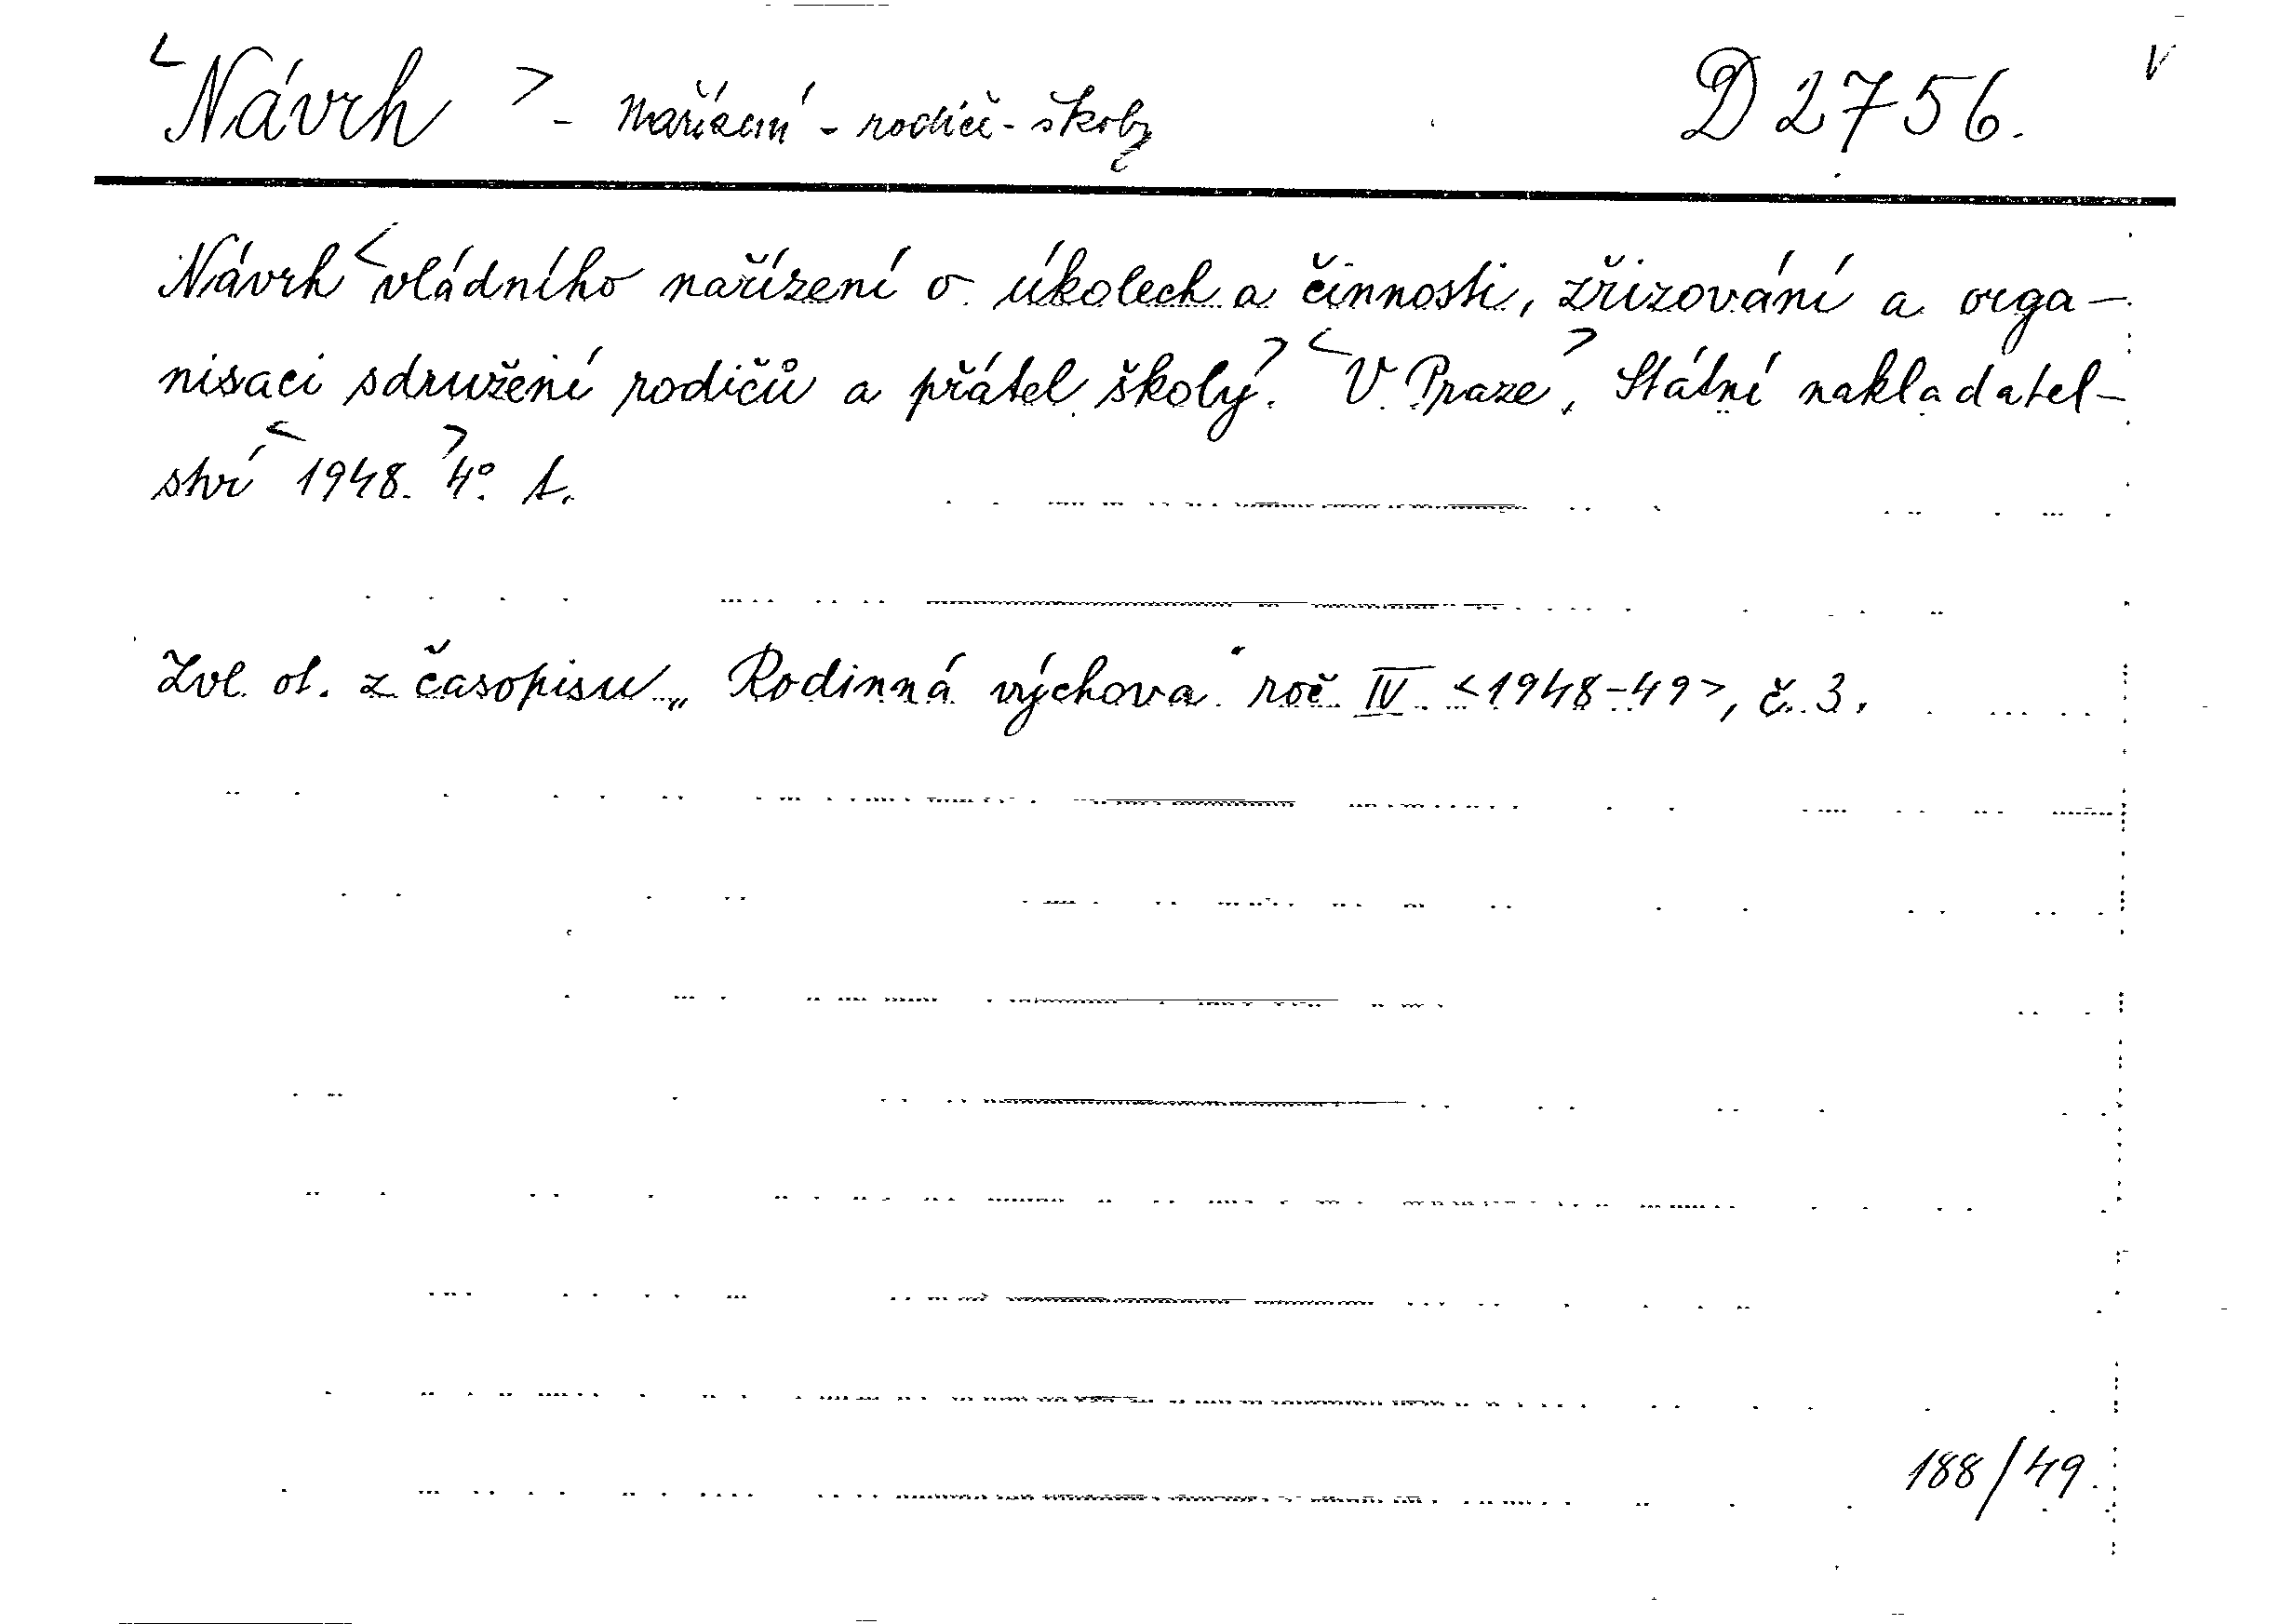 <Návrh> - nařízení - rodičů - školy D 2756. V
Návrh <vládního nařízení o úkolech a činnosti, zřizování a orga-
nisaci sdružení rodičů a přátel školy>. <V Praze>, Státní nakladatel-
ství <1948.> 4°. 
Zvl. ot. z časopisu „Rodinná výchova" roč. IV. <1948-49>, č. 3.
188/49.